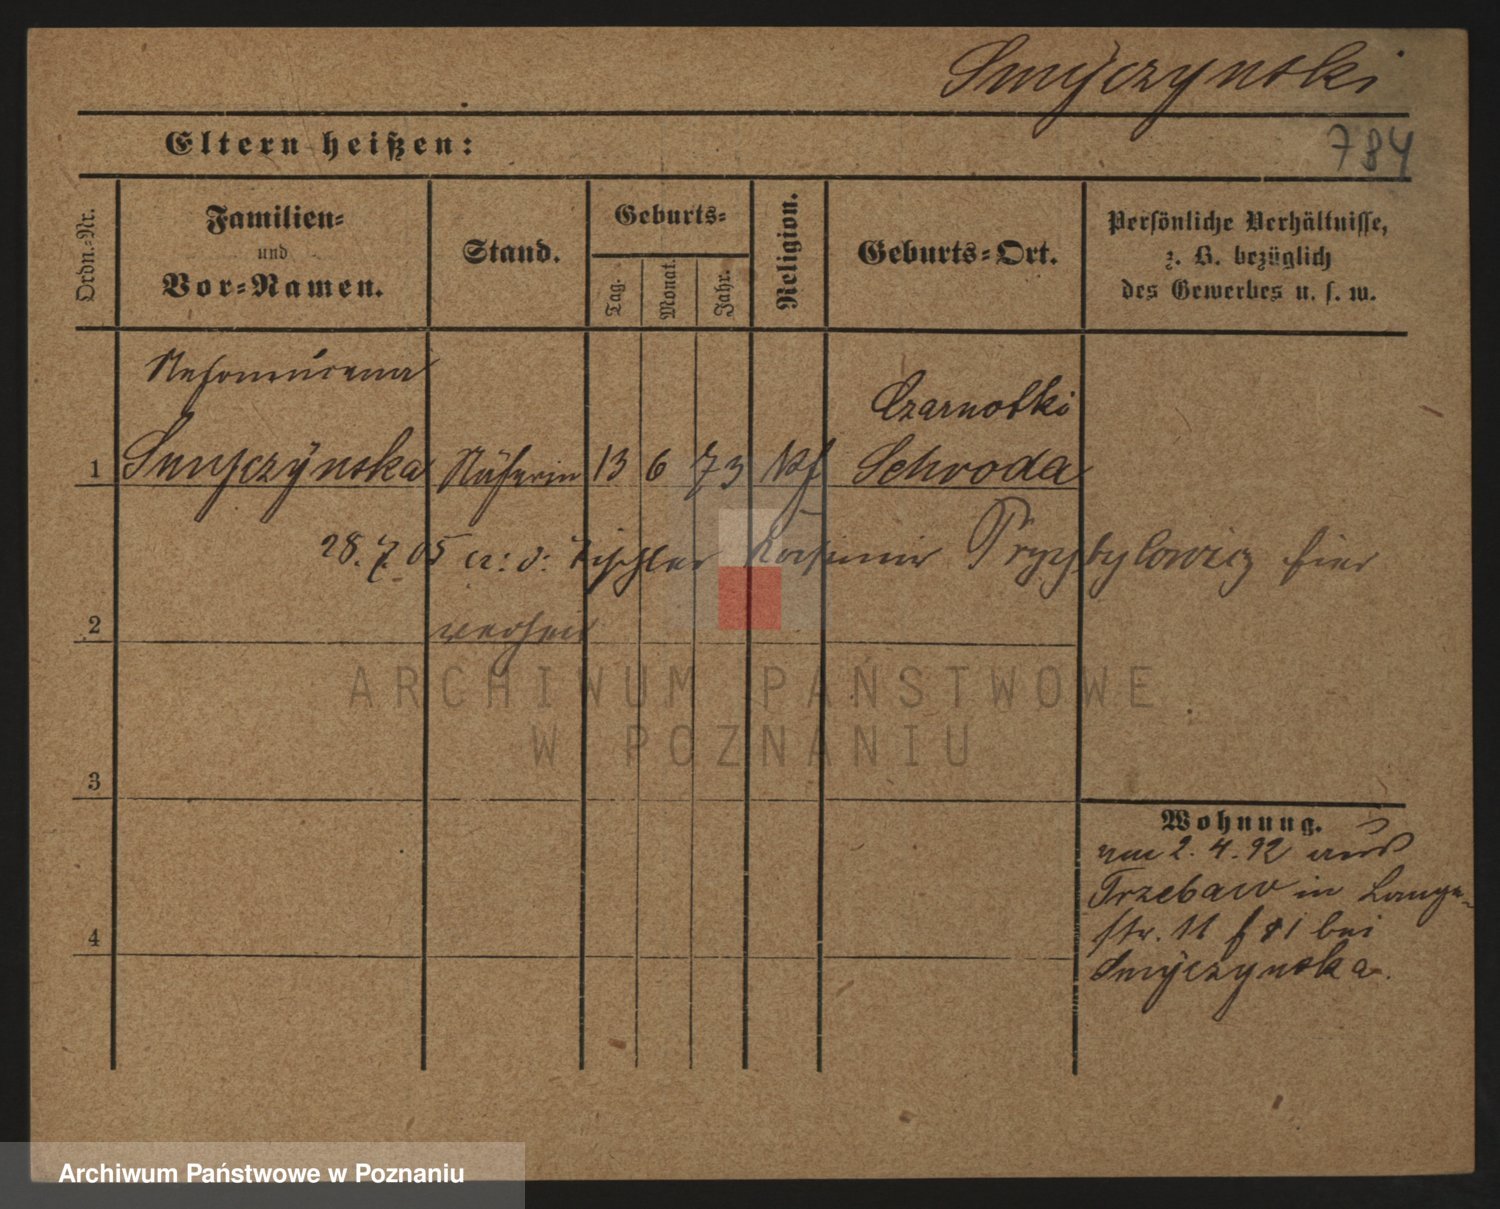 Smyczynski
784
Eltern heißen:
Ordn.-Nr.
Familien-
und
Vor-Namen.
Stand.
Geburts-
Tag.
Monat.
Jahr.
Religion.
Geburts-Ort.
Persönliche Verhältnisse,
z. B. bezüglich
des Gewerbes u. s. w.
Czarnotki
1 Smyczÿnska Näherin 13 6 73 Kf Schroda
28. 7. 05 a: d: Tischler Kasimir Przybylowicz hier
2
ARCHIWUM PAŃSTWOWE
W POZNANIU
3
Wohnung.
am 2. 4. 92 aus
Trzebaw in Lange-
4 str. 11 bei
Smÿczynska.
Archiwum Państwowe w Poznaniu